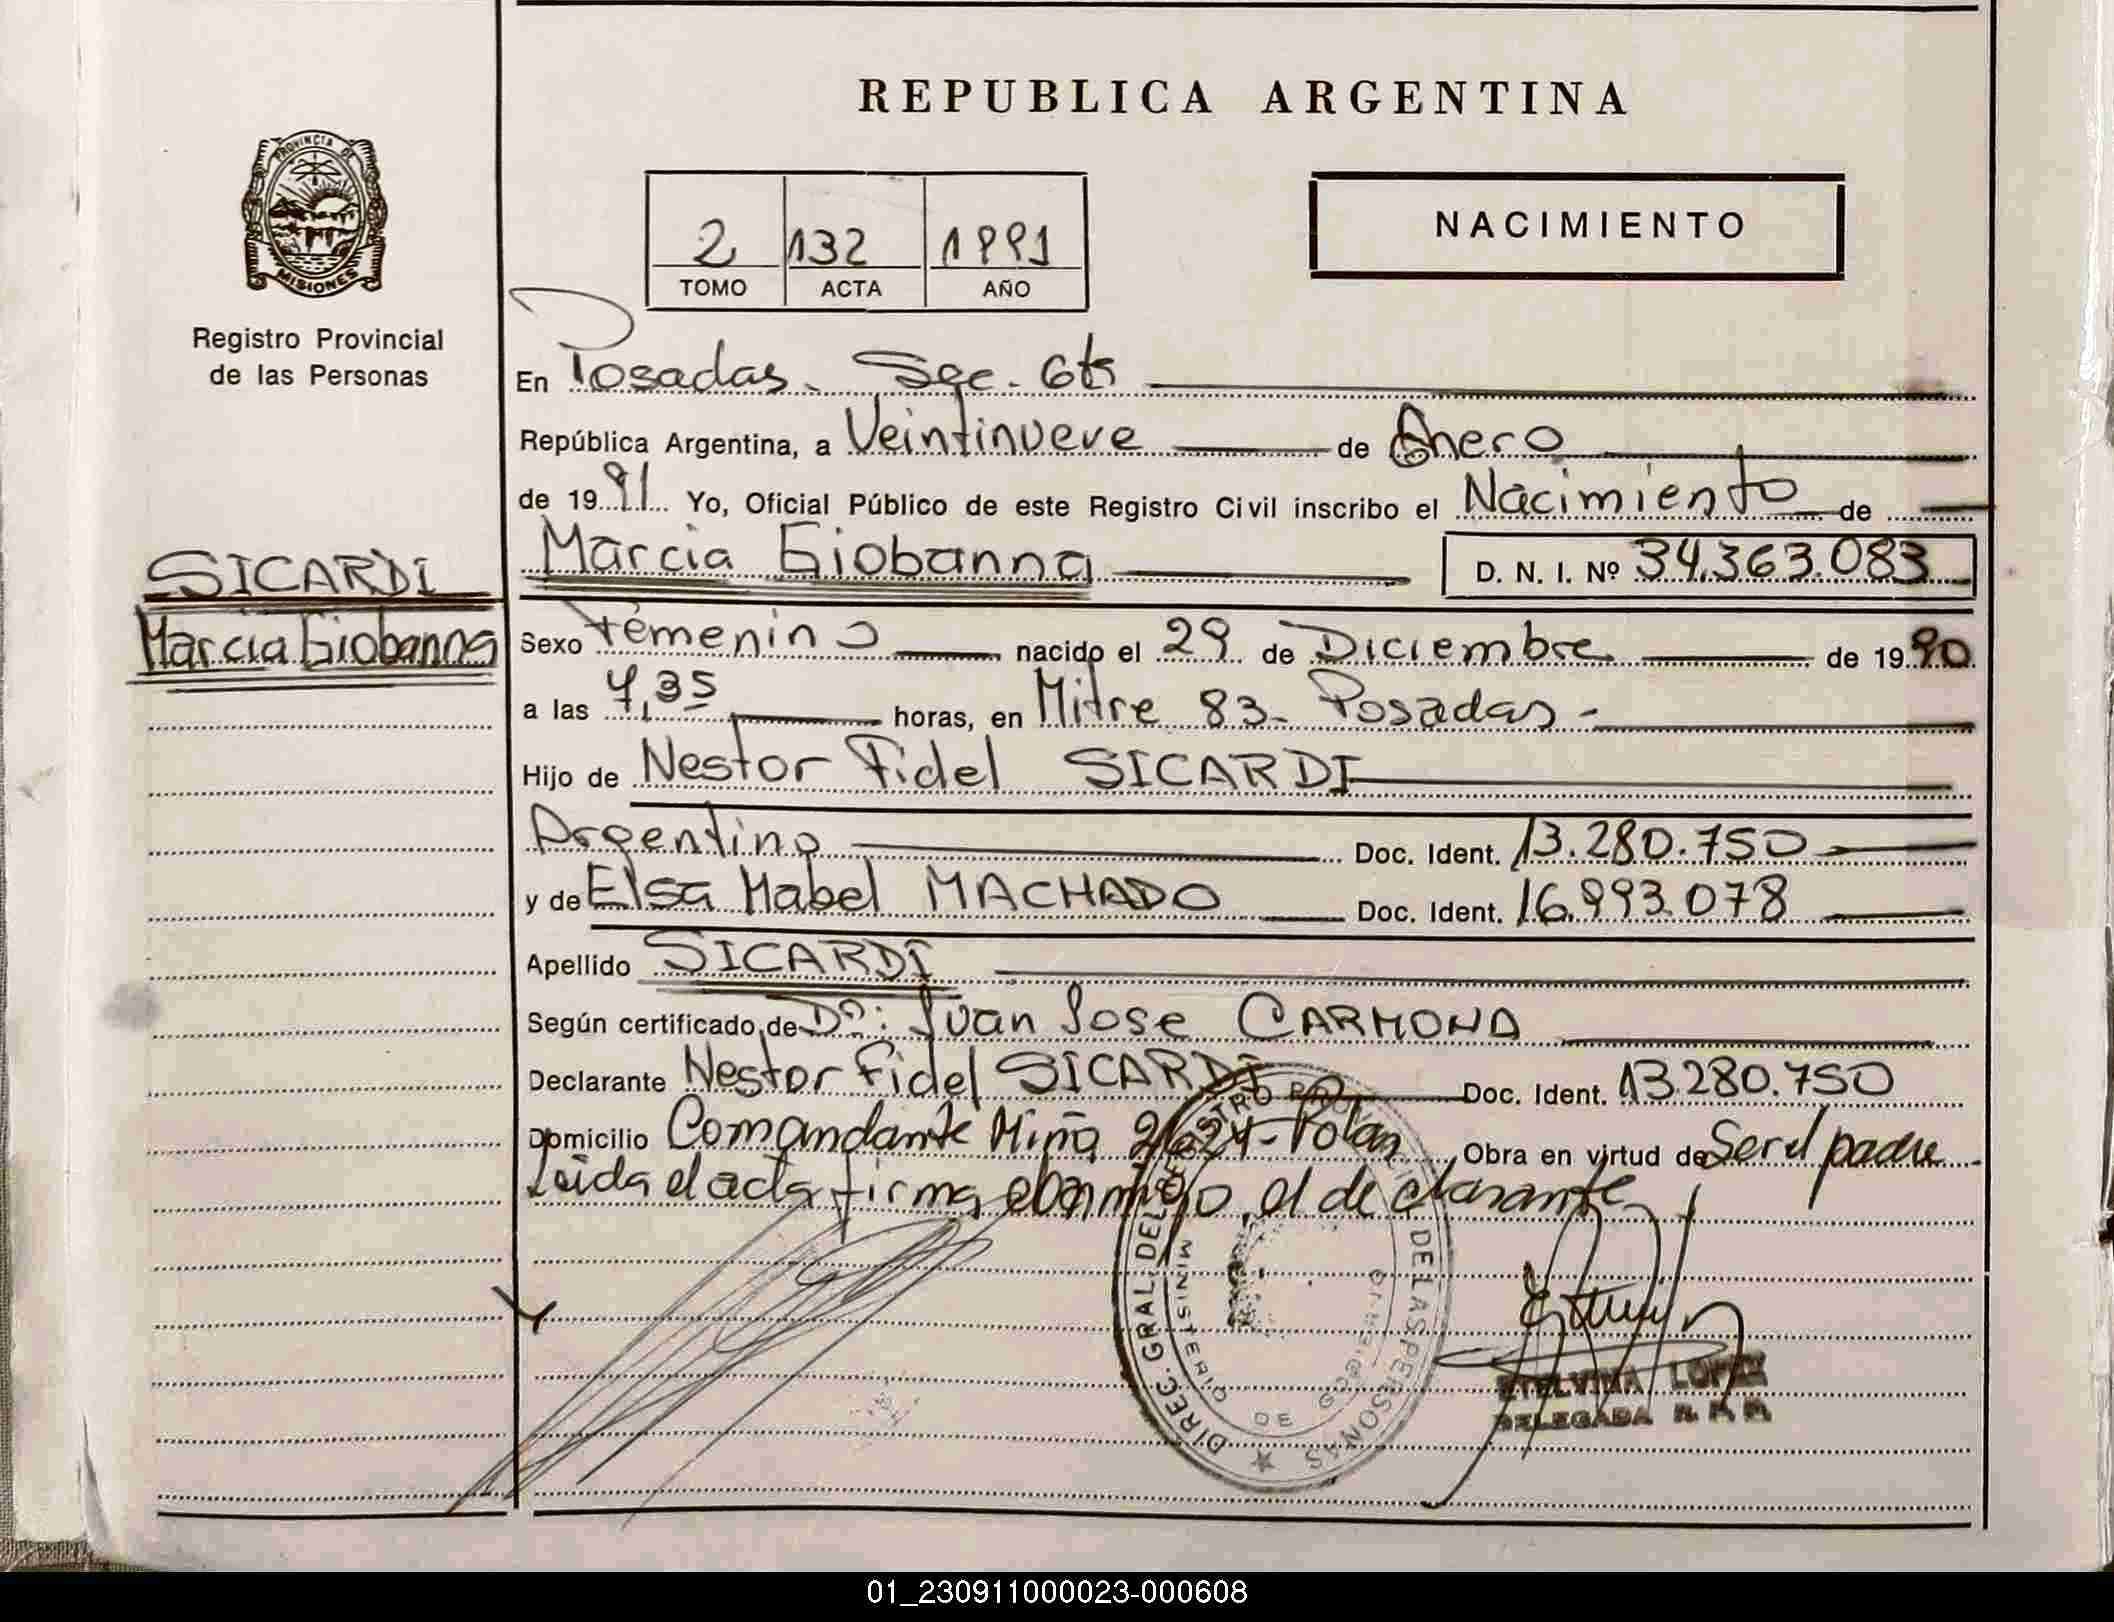 REPUBLICA ARGENTINA
PROVINCIA DE
MISIONES
Registro Provincial
de las Personas
2 132 1991
TOMO ACTA AÑO
NACIMIENTO
En Posadas. Sec. 6ta
República Argentina, a Veintinueve de Enero
de 1991 Yo, Oficial Público de este Registro Civil inscribo el Nacimiento de
Marcia Giobanna D. N. I. Nº 34.363.083
SICARDI
Marcia Giobanna
Sexo Femenino nacido el 29 de Diciembre de 1990
a las 7,35 horas, en Mitre 83- Posadas-
Hijo de Nestor Fidel SICARDI
Argentino Doc. Ident. 13.280.750
y de Elsa Mabel MACHADO Doc. Ident. 16.993.078
Apellido SICARDI
Según certificado de Dr: Juan Jose CARMONA
Declarante Nestor Fidel SICARDI Doc. Ident. 13.280.750
Domicilio Comandante Miño Obra en virtud de Ser el padre
Leida el acta firma conmigo, el declarante
DIREC. GRAL. DEL REGISTRO PROVINCIAL DE LAS PERSONAS
MINISTERIO DE GOBIERNO
ETELVINA LOPEZ
DELEGADA R. P. P.
01_230911000023-000608